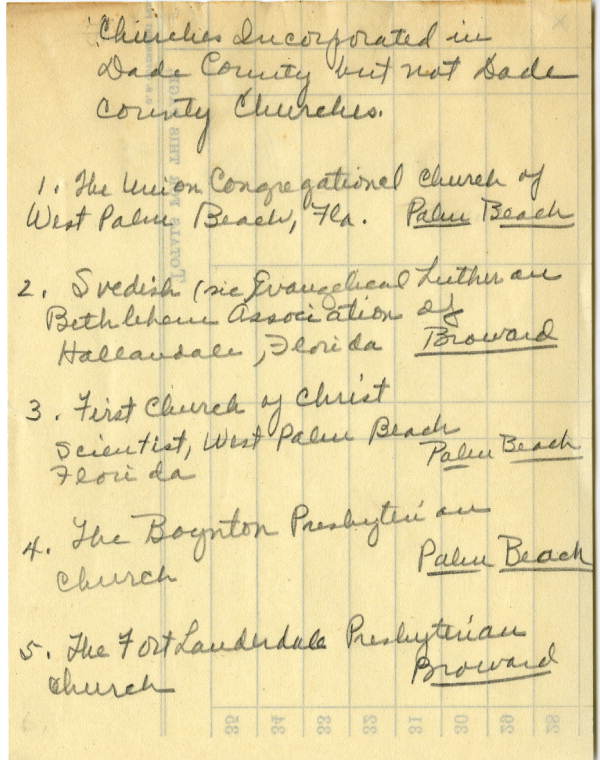 Churches Incorporated in
Dade County but not Dade
County Churches.
1. The Union Congregational Church of
West Palm Beach, Fla. Palm Beach
2. Svedish (sic) Evangelical Lutheran
Bethlehem Association of
Hallandale, Florida Broward
3. First Church of Christ
Scientist, West Palm Beach
Florida Palm Beach
4. The Boynton Presbyterian
Church Palm Beach
5. The Fort Lauderdale Presbyterian
Church Broward
TOTALS FOR THIS PAGE
35 34 33 32 31 30 29 28